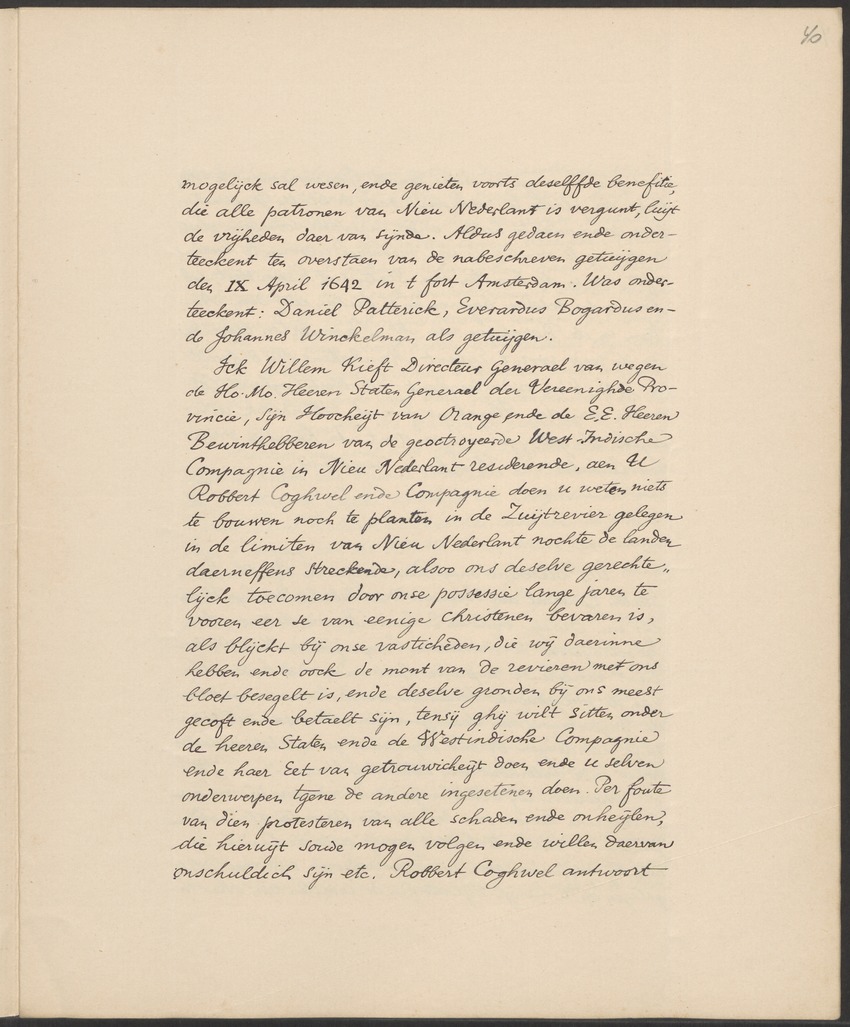 40
mogelijck sal wesen, ende genieten voorts deselffde benefitie,
die alle patronen van Nieu Nederlant is vergunt, luijt
de vrijheden daer van sijnde. Aldus gedaen ende onder-
teeckent ten overstaen van de nabeschreven getuijgen
den IX April 1642 in t fort Amsterdam. Was onder-
teeckent: Daniel Patterick, Everardus Bogardus en-
de Johannes Winckelman als getuijgen.
Ick Willem Kieft Directeur Generael van wegen
de Ho. Mo. Heeren Staten Generael der Vereenighde Pro-
vincie, Sijn Hoocheijt van Orange ende de E.E. Heeren
Bewinthebberen van de geoctroyeerde West-Indische
Compagnie in Nieu Nederlant residerende, aen U
Robbert Coghwel ende Compagnie doen u weten niets
te bouwen noch te planten in de Zuijtrevier gelegen
in de limiten van Nieu Nederlant nochte de landen
daerneffens streckende, alsoo ons deselve gerechte„
lijck toecomen door onse possessie lange jaren te
vooren eer se van eenige christenen bevaren is,
als blijckt bij onse vasticheden, die wij daerinne
hebben ende oock de mont van de revieren met ons
bloet besegelt is, ende deselve gronden bij ons meest
gecoft ende betaelt sijn, tensij ghij wilt sitten onder
de heeren Staten ende de Westindische Compagnie
ende haer Eet van getrouwicheijt doen ende u selven
onderwerpen tgene de andere ingesetenen doen. Per foute
van dien protesteren van alle schaden ende onheijlen,
die hieruijt soude mogen volgen ende willen daervan
onschuldich sijn etc. Robbert Coghwel antwoort